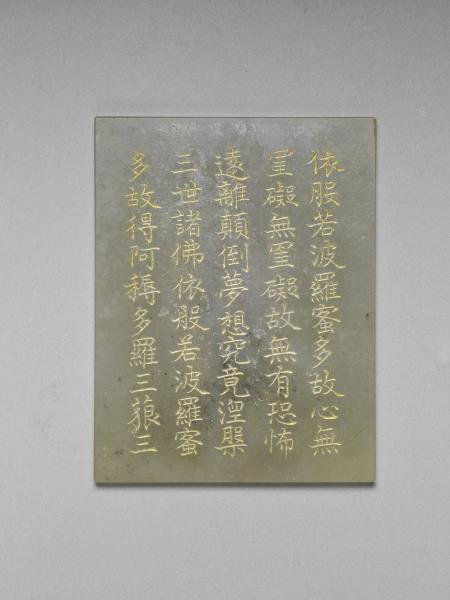 依般若波羅蜜多故心無
罣礙無罣礙故無有恐怖
遠離顛倒夢想究竟涅槃
三世諸佛依般若波羅蜜
多故得阿耨多羅三藐三